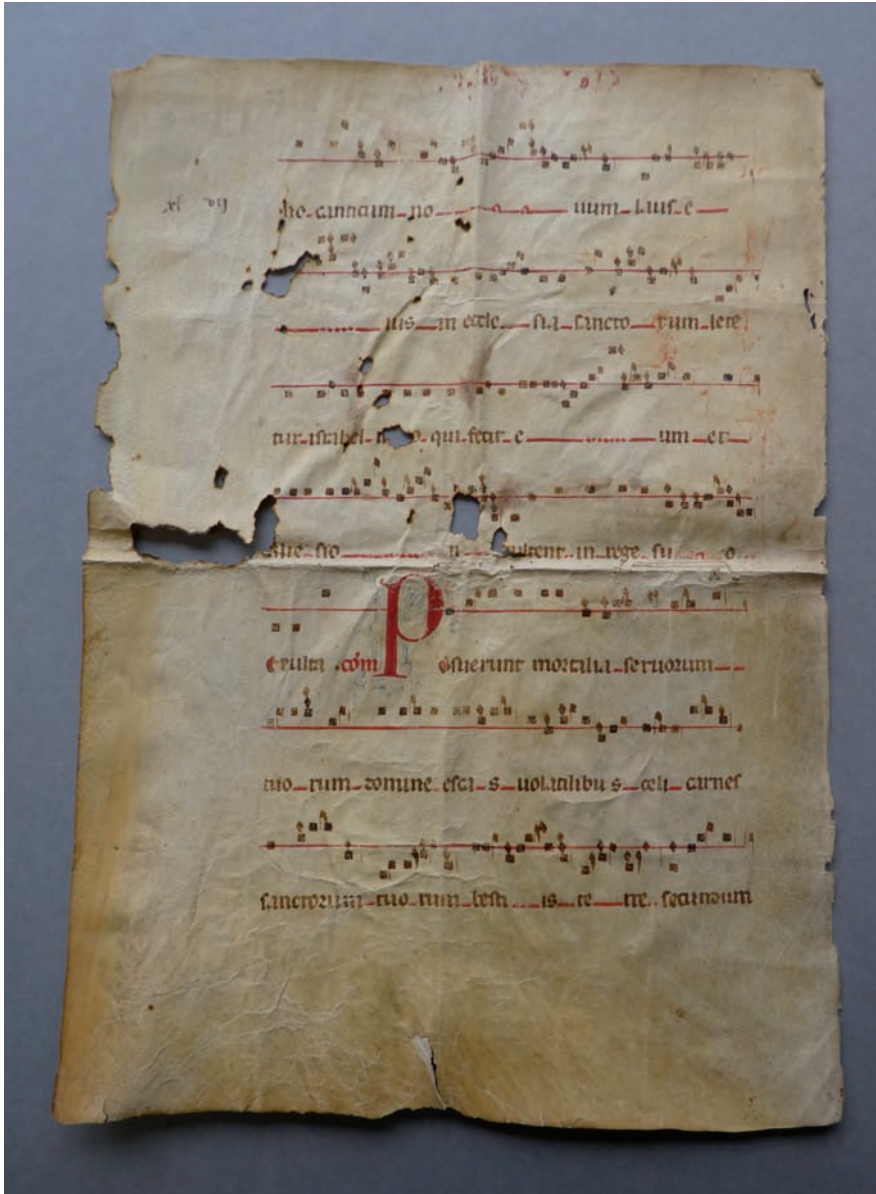 no canticum no uum laus e
ius in eccle sia sancto rum lete
tur israhel qui fecit e um et
sue sio ultent in rege su o
exulta com Posuerunt mortalia seruorum
tuo rum domine esca s uolatilibu s celi carnes
sanctorum tuo rum besti is te rre secundum